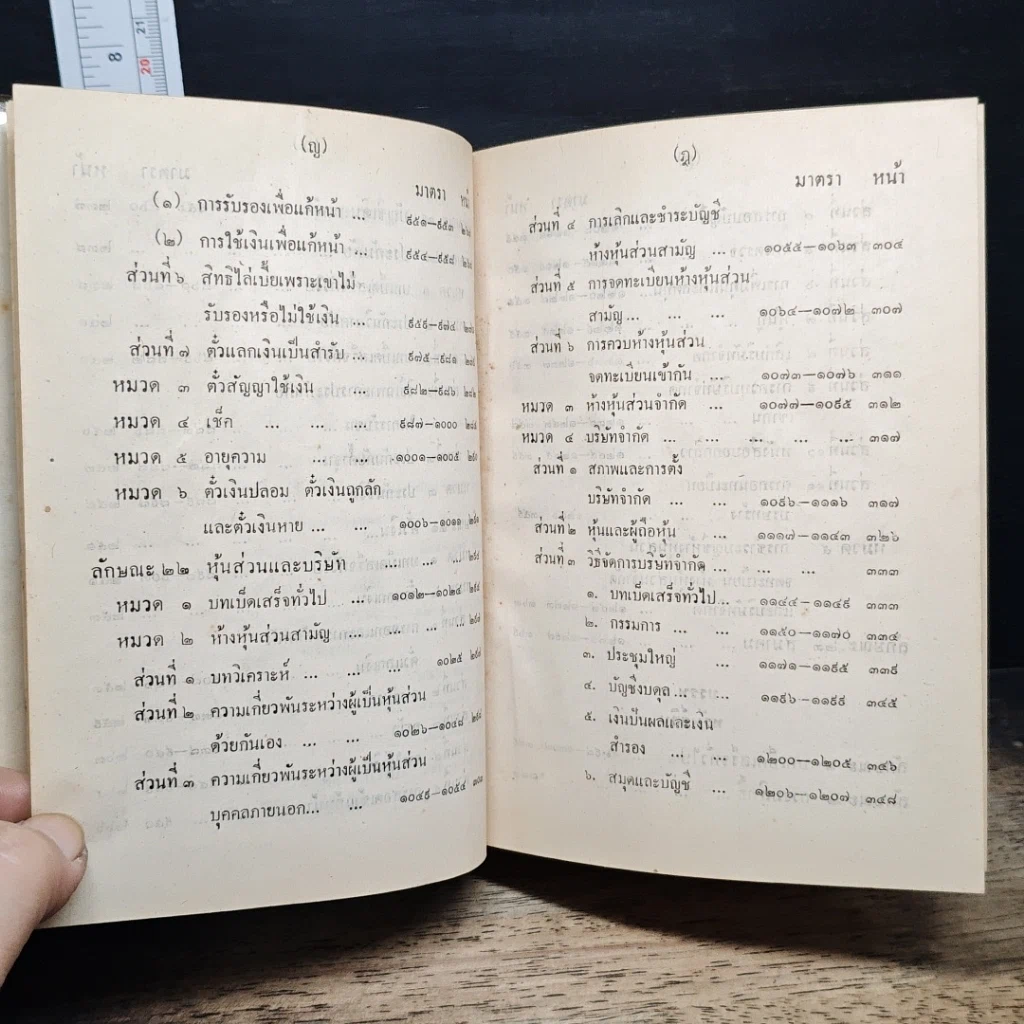 8
21
20
(ญ)
มาตรา หน้
(๑) การรับรองเพื่อแก้หน้า ... ๙๕๑—๙๕๓
(๒) การใช้เงินเพื่อแก้หน้า ... ๙๕๔—๙๕๘
ส่วนที่ ๖ สิทธิไล่เบี้ยเพราะเขาไม่
รับรองหรือไม่ใช้เงิน ... ๙๕๙—๙๗๔
ส่วนที่ ๗ ตั๋วแลกเงินเป็นสำรับ ... ๙๗๕—๙๘๑
หมวด ๓ ตั๋วสัญญาใช้เงิน ๙๘๒—๙๘๖
หมวด ๔ เช็ค ... ... ... ๙๘๗—๑๐๐๐
หมวด ๕ อายุความ ... ... ๑๐๐๑—๑๐๐๕
หมวด ๖ ตั๋วเงินปลอม ตั๋วเงินถูกลัก
และตั๋วเงินหาย ... ... ๑๐๐๖—๑๐๑๑
ลักษณะ ๒๒ หุ้นส่วนและบริษัท ... ... ...
หมวด ๑ บทเบ็ดเสร็จทั่วไป ... ๑๐๑๒—๑๐๒๔
หมวด ๒ ห้างหุ้นส่วนสามัญ ... ... ... ...
ส่วนที่ ๑ บทวิเคราะห์ ... ... ... ๑๐๒๕
ส่วนที่ ๒ ความเกี่ยวพันระหว่างผู้เป็นหุ้นส่วน
ด้วยกันเอง ... ... ๑๐๒๖—๑๐๔๘
ส่วนที่ ๓ ความเกี่ยวพันระหว่างผู้เป็นหุ้นส่วน
บุคคลภายนอก... ... ๑๐๔๙—๑๐๕๔
(ฎ)
มาตรา หน้า
ส่วนที่ ๔ การเลิกและชำระบัญชี
ห้างหุ้นส่วนสามัญ ... ๑๐๕๕—๑๐๖๓ ๓๐๔
ส่วนที่ ๕ การจดทะเบียนห้างหุ้นส่วน
สามัญ... ... ... ๑๐๖๔—๑๐๗๒ ๓๐๗
ส่วนที่ ๖ การควบห้างหุ้นส่วน
จดทะเบียนเข้ากัน ... ๑๐๗๓—๑๐๗๖ ๓๑๑
หมวด ๓ ห้างหุ้นส่วนจำกัด ... ๑๐๗๗—๑๐๙๕ ๓๑๒
หมวด ๔ บริษัทจำกัด ... ... ... ... ... ๓๑๗
ส่วนที่ ๑ สภาพและการตั้ง
บริษัทจำกัด ... ๑๐๙๖—๑๑๑๖ ๓๑๗
ส่วนที่ ๒ หุ้นและผู้ถือหุ้น ... ๑๑๑๗—๑๑๔๓ ๓๒๖
ส่วนที่ ๓ วิธีจัดการบริษัทจำกัด ... ... ๓๓๓
๑. บทเบ็ดเสร็จทั่วไป... ๑๑๔๔—๑๑๔๙ ๓๓๓
๒. กรรมการ ... ... ๑๑๕๐—๑๑๗๐ ๓๓๔
๓. ประชุมใหญ่ ... ๑๑๗๑—๑๑๙๕ ๓๓๙
๔. บัญชีงบดุล ... ... ๑๑๙๖—๑๑๙๙ ๓๔๕
๕. เงินปันผลและเงิน
สำรอง ... ... ๑๒๐๐—๑๒๐๕ ๓๔๖
๖. สมุดและบัญชี ... ๑๒๐๖—๑๒๐๗ ๓๔๘